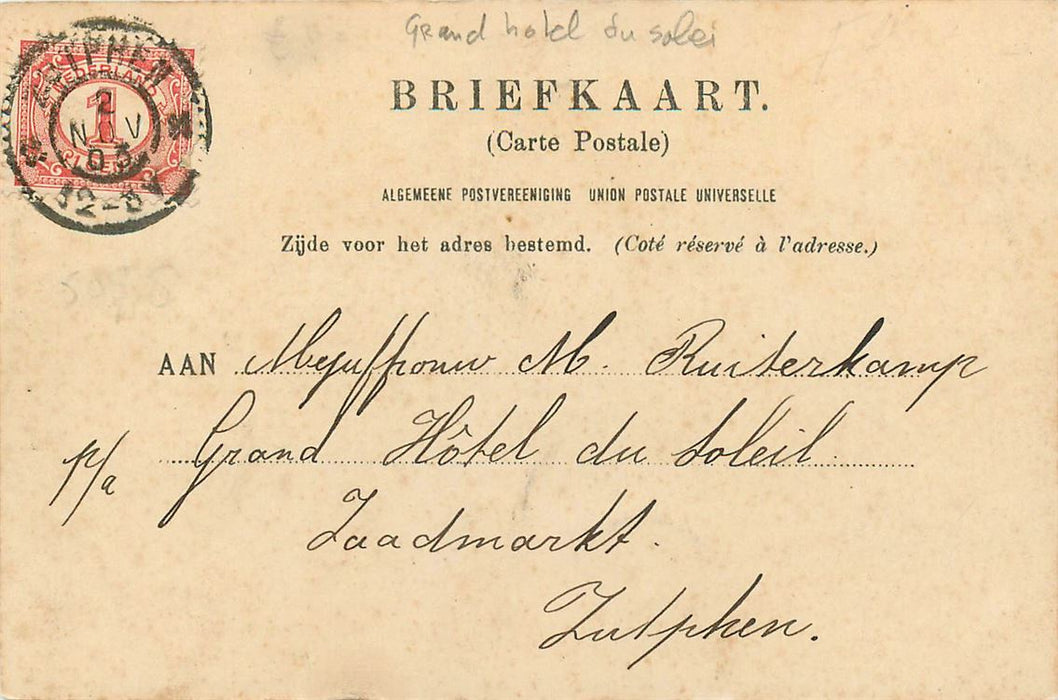 Grand hotel du solei
ZUTPHEN
NEDERLAND
2
NOV
03
1
12-8V
BRIEFKAART.
(Carte Postale)
ALGEMEENE POSTVEREENIGING UNION POSTALE UNIVERSELLE
Zijde voor het adres bestemd. (Coté réservé à l'adresse.)
AAN Mejuffrouw M. Ruiterkamp
p/a Grand Hôtel du Soleil
Zaadmarkt.
Zutphen.